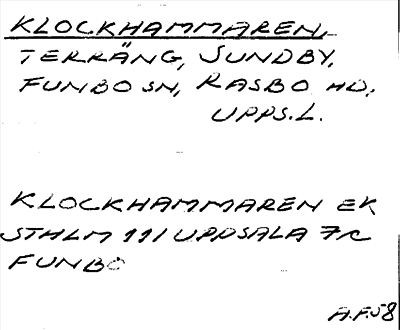 KLOCKHAMMAREN,
TERRÄNG, SUNDBY,
FUNBO SN, RASBO HD,
UPPS.L.
KLOCKHAMMAREN EK
STHLM 111 UPPSALA 7c
FUNBO
A.F.58